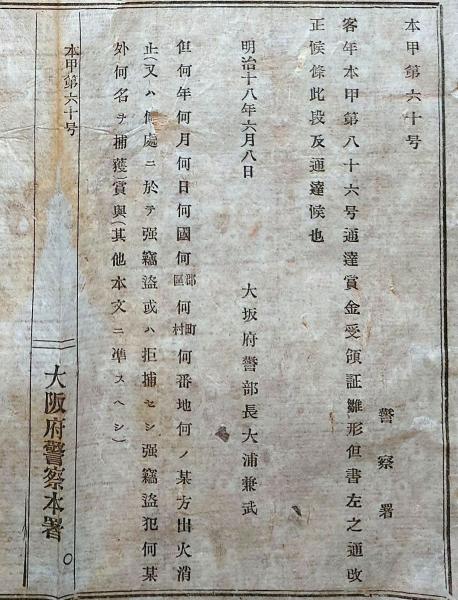 本甲第六十号
警察署
客年本甲第八十六号通達賞金受領証雛形但書左之通改
正候條此段及通達候也
明治十八年六月八日
大坂府警部長大浦兼武
但何年何月何日何國何郡區何町村何番地何ノ某方出火消
止(又ハ何處ニ於テ强竊盜或ハ拒捕セシ强竊盜犯何某
外何名ヲ捕獲)賞與(其他本文ニ準スヘシ)
本甲第六十号
大阪府警察本署